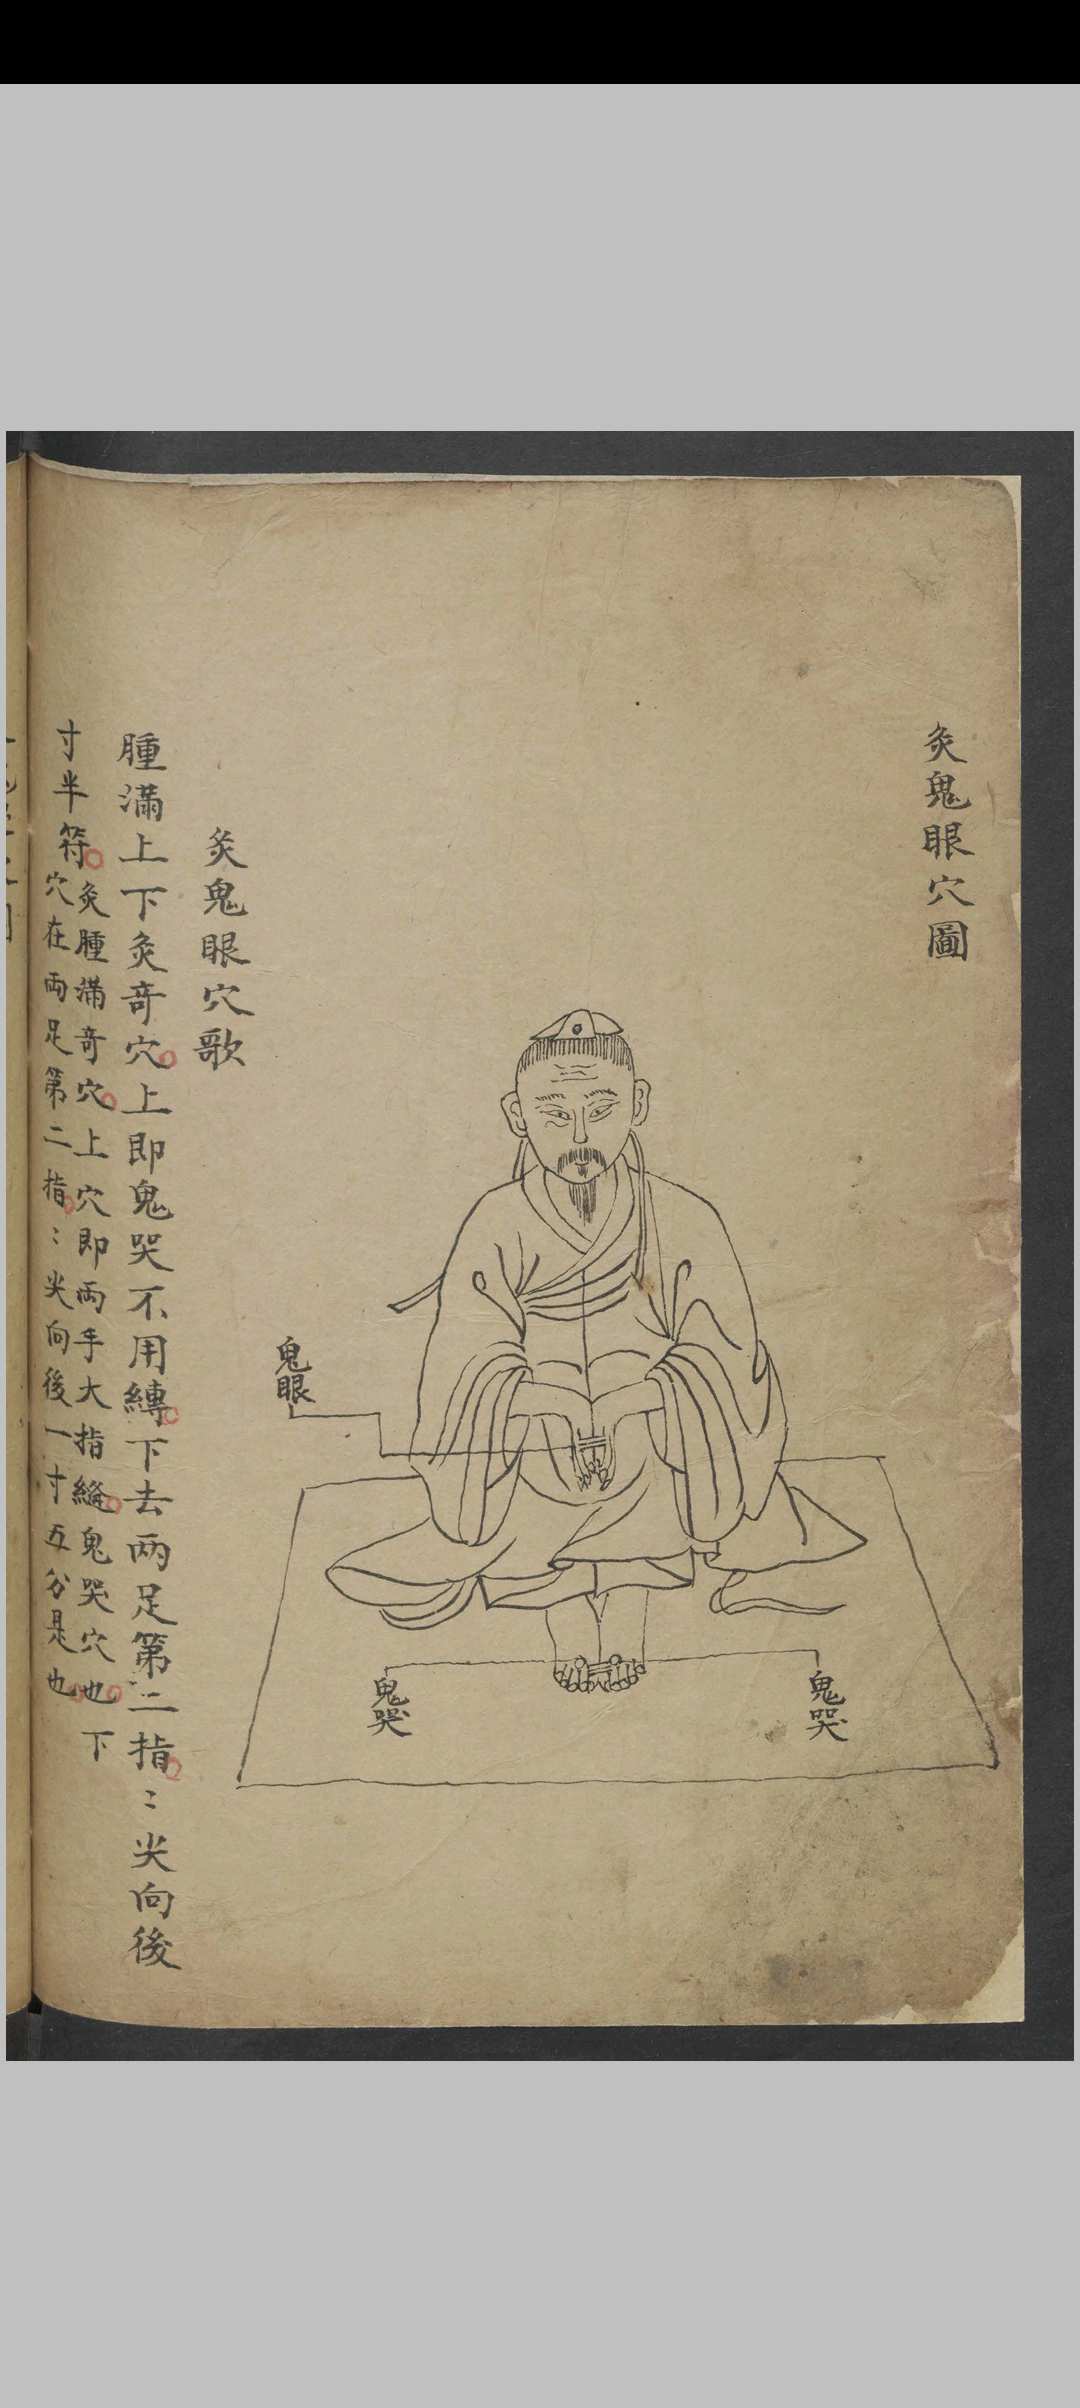 灸鬼眼穴圖
鬼哭
鬼哭
鬼眼
灸鬼眼穴歌
腫滿上下灸竒穴上即鬼哭不用縳下去兩足第二指〻尖向後
寸半符
灸腫滿竒穴上穴即兩手大指縫鬼哭穴也下
穴在兩足第二指〻尖向後一寸五分是也